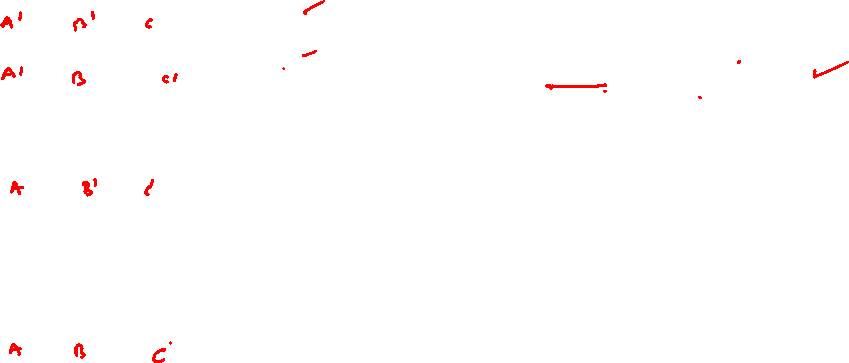 A' B' C
A' B C'
A B' C'
A B C'